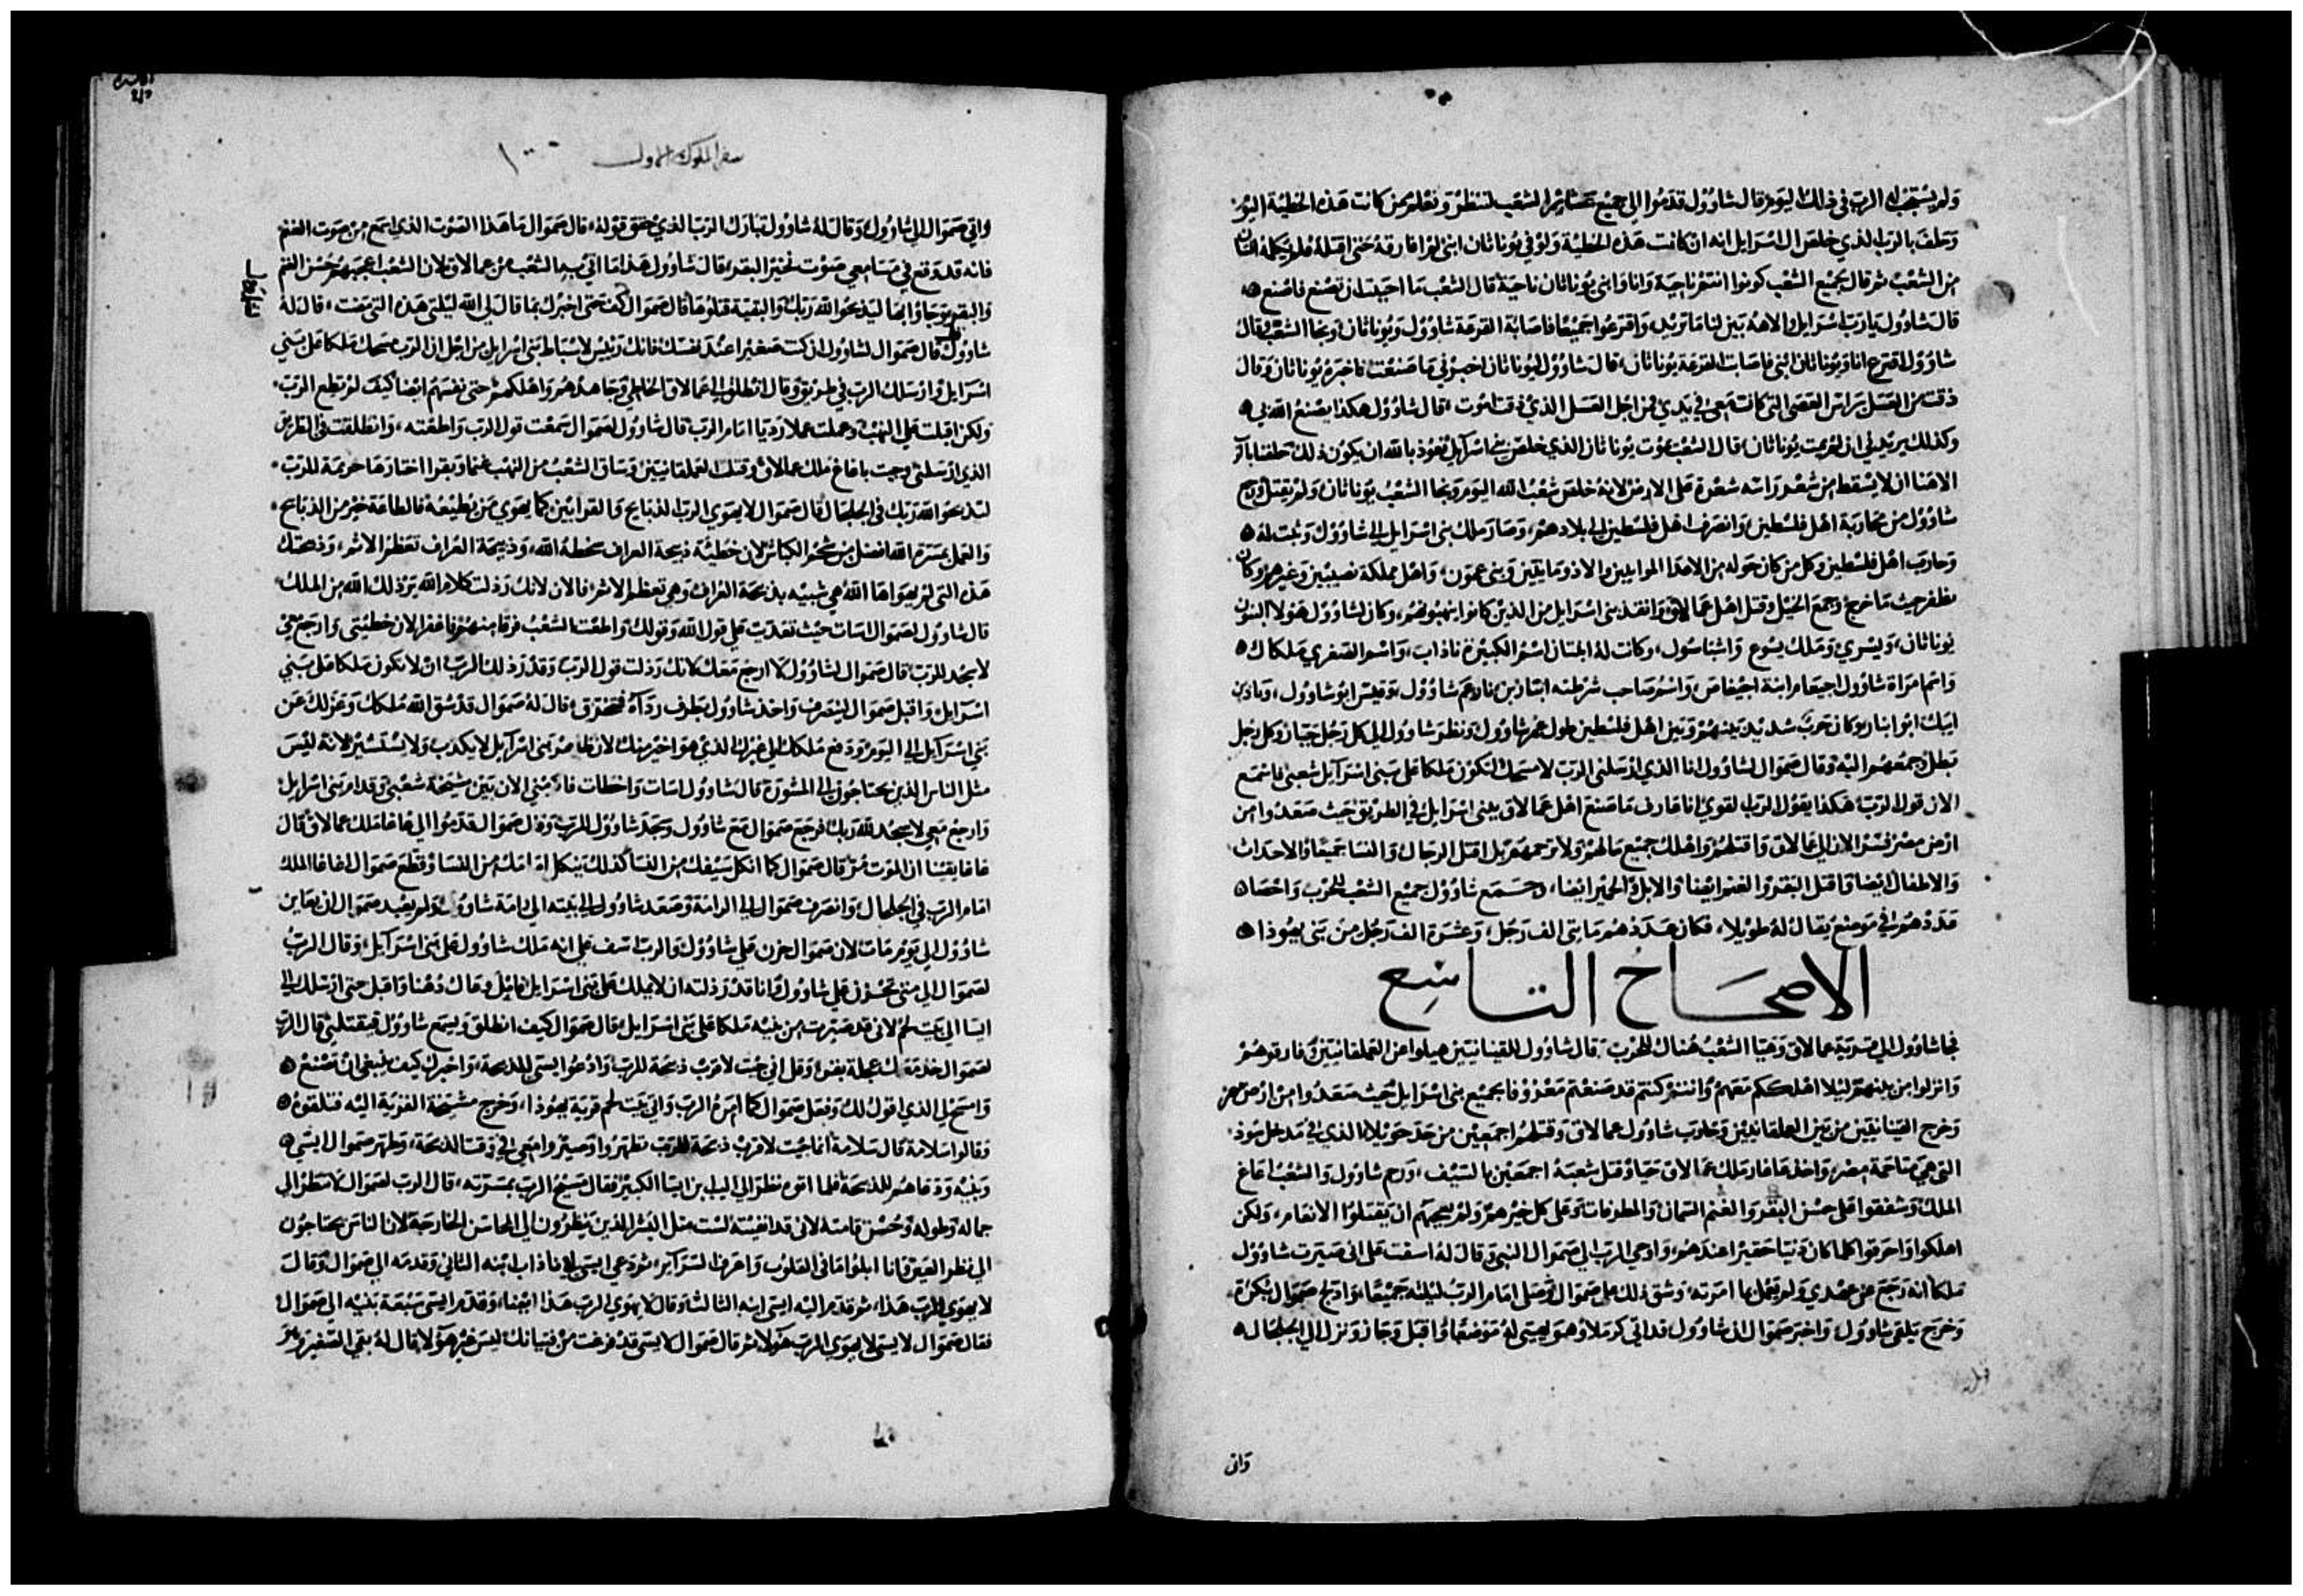 ولم يستجب له الرب في ذلك اليوم قال شاوول قدموا الي جميع عشائر الشعب لننظر ونعلم من كانت هذه الخطية اليوم
وحلف بالرب الذي خلص ال اسرايل انه ان كانت هذه الخطية ولو في يوناثان ابني لم افارقه حتى اقتله فلم يكلمه انسان
من الشعب ثم قال لجميع الشعب كونوا انتم ناحية وانا وابني يوناثان ناحية قال الشعب ما احببت ان تصنع فاصنع
قال شاوول يا رب اسرايل الاهنا بين لنا ما تريد واقترعوا جميعا فاصابة القرعة شاوول ويوناثان ونجا الشعب فقال
شاوول اقترع انا ويوناثان ابني فاصابت القرعة يوناثان قال شاوول ليوناثان اخبرني ما صنعت فاخبره يوناثان وقال
ذقت من العسل براس العصى التي كانت معي في يدي فمن اجل العسل الذي ذقت اموت قال شاوول هكذا يصنع الله بي
وكذلك يزيدني ان لم يمت يوناثان قال الشعب يموت يوناثان الذي خلص بني اسرايل نعوذ بالله ان يكون ذلك حلفنا بالله
الاهنا ان لا يسقط من شعر راسه شعرة على الارض لانه خلص شعب الله اليوم ونجا الشعب يوناثان ولم يقتل ورجع
شاوول من محاربة اهل فلسطين وانصرف اهل فلسطين الى بلادهم وصار ملك بني اسرايل الى شاوول وثبت له
وحارب اهل فلسطين وكل من كان حوله من الاعدا الموابيين والادومايين وبني عمون واهل مملكة نصيبين وغيرهم وكان
يظفر حيث ما خرج وجمع الخيل وقتل اهل عمالاق وانقذ بني اسرايل من الذين كانوا ينهبونهم وكان لشاوول هولا البنون
يوناثان ويسري وملك يسوع واشباسول وكانت له ابنتان اسم الكبيرة ناذاب واسم الصغري ملكال
واسم امراة شاوول اجيعام ابنة اجيعاص واسم صاحب شرطته ابنار بن نار عم شاوول وقيس ابو شاوول ونار بن
ايبك ابو ابنار وكان حرب شديد بينهم وبين اهل فلسطين طول عمر شاوول ونظر شاوول الى كل رجل جبار وكل رجل
بطل وجمعهم اليه وقال صموال لشاوول انا الذي ارسلني الرب لامسحك لتكون ملكا على بني اسرايل شعبي فاسمع
الان قول الرب هكذا يقول الرب القوي انا عارف ما صنع اهل عمالاق ببني اسرايل في الطريق حيث صعدوا من
ارض مصر فسر الان الى عمالاق واقتلهم واهلك جميع مالهم ولا ترحمهم بل اقتل الرجال والنسا جميعا والاحداث
والاطفال ايضا واقتل البقر والغنم ايضا والابل والحمير ايضا وجمع شاوول جميع الشعب للحرب واحصا
عددهم في موضع يقال له طويلا فكان عددهم مايتي الف رجل وعشرة الف رجل من بني يهوذا
الاصحاح التاسع
فجا شاوول الى قرية عمالاق وهيا الشعب هناك للحرب قال شاوول للقينانيين ميلوا عن العملقانيين وفارقوهم
وانزلوا من بينهم ليلا اهلككم معهم وانتم كنتم قد صنعتم معروفا بجميع بني اسرايل حيث صعدوا من ارض مصر
وخرج القينانيين من بين العملقانيين وحارب شاوول عمالاق وقتلهم اجمعين من حد حويلا الذي في مدخل سوذ
التي هي متاخمة مصر واخذ عاغا ملك عمالاق حيا وقتل شعبه اجمعين بالسيف ورحم شاوول والشعب اعاغ
الملك وشفقوا على حسن البقر والغنم السمان والمعلوفات وعلى كل خير هم ولم يعجبهم ان يقتلوا الانعام ولكن
اهلكوا واحرقوا كلما كان دنيا حقيرا عندهم واوحي الرب الى صموال النبي وقال له اسفت على اني صيرت شاوول
ملكا انه رجع عن عهدي ولم يعمل بما امرته وشق ذلك على صموال وصلى امام الرب ليلته جميعا وادلج صموال بكرة
وخرج يلقى شاوول واخبر صموال ان شاوول قد اتي كرملا وهو يهيي له موضعا واقبل وجاز ونزل الى الجلجال
واتى
سفر الملوك الاول ١٠٠
واتي صموال الى شاوول وقال له شاوول تبارك الرب الذي حقق قوله قال صموال ما هذا الصوت الذي اسمع من صوت الغنم
فانه قد وقع في مسامعي صوت نخير البقر قال شاوول هذا ما اتي به الشعب من عمالاق لان الشعب اعجبهم حسن الغنم
والبقر وجاوا بها ليذبحوا لله ربك والبقية قتلوها قال صموال كف حتى اخبرك بما قال لي الله ليلتي هذه التي مضت قال له
شاوول قل قال صموال لشاوول ان كنت صغيرا عند نفسك فانك رئيس لاسباط بني اسرايل من اجل ان الرب مسحك ملكا على بني
اسرايل وارسلك الرب في طريق وقال انطلق الى عمالاق الخاطي وجاهدهم واهلكهم حتى تفنيهم ايضا كيف لم تطع الرب
ولكن اقبلت على النهب وعملت عملا رديا امام الرب قال شاوول لصموال سمعت قول الرب واطعته وانطلقت في الطريق
الذي ارسلني وجيت باغاغ ملك عمالاق وقتلت العملقانيين وساق الشعب من النهب غنما وبقرا اختارها حريمة للرب
لتذبحوا لله ربك في الجلجال قال صموال لا يهوي الرب الذبايح والقرابين كما يهوي من يطيعه فالطاعة خير من الذبايح
والعمل بمسرة الله افضل من شحوم الكباش لان خطية ذبيحة العراف سخطة الله وذبيحة العراف تعظم الاثم وذبيحتك
هذه التي لم يهواها الله هي شبيه بذبيحة العراف وهي تعظم الاثم فالان لانك رذلت كلام الله يرذلك الله من الملك
قال شاوول لصموال اسات حيث تعديت على قول الله وقولك واطعت الشعب فرقا منهم فاغفر الان خطيتي وارجع معي
لاسجد للرب قال صموال لشاوول لا ارجع معك لانك رذلت قول الرب وقد رذلك الرب ان لا تكون ملكا على بني
اسرايل واقبل صموال لينصرف واخذ شاوول بطرف ردآه فتخرق قال له صموال قد شق الله ملكك وعزلك عن
بني اسرآيل الى اليوم ودفع ملكك الى غيرك الذي هو اخير منك لان طاهر بني اسرآيل لا يكذب ولا يستشير لانه ليس
مثل الناس الذين يحتاجون الى المشورة قال شاوول اسات واخطات فاكرمني الان بين مشيخة شعبي وقدام بني اسرايل
وارجع معي لاسجد لله ربك فرجع صموال مع شاوول وسجد شاوول للرب وقال صموال قدموا الي عاغا ملك عمالاق قال
عاغا يقينا ان الموت مر قال صموال كما اثكل سيفك من النسا كذلك يثكل امامك من النسا وقطع صموال لعاغا الملك
امام الرب في الجلجال وانصرف صموال الى الرامة وصعد شاوول الى بيته الى رامة شاوول ولم يعيد صموال ان يعاين
شاوول الى يوم مات لان صموال حزن على شاوول والرب اسف على انه ملك شاوول على بني اسرآيل وقال الرب
لصموال الى متى تحزن على شاوول وانا قد رذلته ان لا يملك على بني اسرايل املا وعاك دهنا واقبل حتى ارسلك الى
ايسا الى بيت لحم لاني قد صيرت من بنيه ملكا على بني اسرايل قال صموال كيف انطلق ويسمع شاوول فيقتلني قال الرب
لصموال خذ معك عجلة بقر وقل اني جيت لاقرب ذبيحة للرب وادعوا ايسى للذبيحة واخبرك كيف ينبغي ان تصنع
وامسح لي الذي اقول لك وفعل صموال كما امره الرب واتى بيت لحم قرية يهوذا وخرج مشيخة القرية اليه فتلقوه
وقالوا سلامة قال سلامة انما جيت لاقرب ذبيحة للرب تطهروا وتصيروا معي في وقت الذبيحة وطهر صموال ايسي
وبنيه ودعاهم للذبيحة فلما اتوه نظر الى الياب بن ايسا الكبير فقال مسيح الرب بمسرته قال الرب لصموال لا تنظر الى
جماله وطوله وحسن قامته لاني قد انفيته لست مثل البشر الذين ينظرون الى المحاسن الخارجة لان الناس يحتاجون
الى نظر العين فانا ابلوا ما في القلوب واعرف السرآير ثم دعى ايسى لابناذاب ابنه الثاني وقدمه الى صموال وقال
لا يهوي الرب هذا ثم قدم اليه ايسى ابنه الثالث وقال لا يهوي الرب هذا ايضا وقدم ايسى سبعة بنيه الى صموال
فقال صموال لايسى لا يهوي الرب هولا ثم قال صموال لايسى قد فرغت من فتيانك ليس غير هولا قال له بقي الصغير وهو